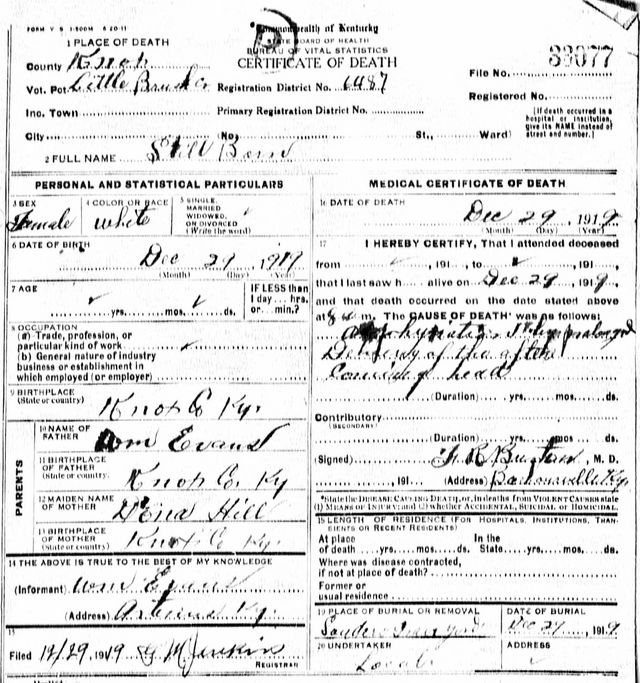 FORM V S 1-500M 8 20-11
Commonwealth of Kentucky
STATE BOARD OF HEALTH
BUREAU OF VITAL STATISTICS
CERTIFICATE OF DEATH
1 PLACE OF DEATH
County Knox
Vot. Pct. Little
Registration District No. 6487
File No. 33077
Inc. Town
Primary Registration District No.
Registered No.
City (No. St., Ward)
[If death occurred in a hospital or institution, give its NAME instead of street and number.]
2 FULL NAME Still Born
PERSONAL AND STATISTICAL PARTICULARS
3 SEX
Female
4 COLOR OR RACE
white
5 SINGLE, MARRIED WIDOWED, OR DIVORCED
(Write the word)
6 DATE OF BIRTH
Dec 29 1919
(Month) (Day) (Year)
7 AGE
yrs. mos. ds.
IF LESS than
1 day... hrs.
or ... min.?
8 OCCUPATION
(a) Trade, profession, or
particular kind of work
(b) General nature of industry
business or establishment in
which employed (or employer)
9 BIRTHPLACE
(State or country)
Knox Co Ky.
PARENTS
10 NAME OF FATHER
Wm Evans
11 BIRTHPLACE OF FATHER
(State or country)
Knox Co. Ky
12 MAIDEN NAME OF MOTHER
Hill
13 BIRTHPLACE OF MOTHER
(State or country)
Knox Co Ky.
14 THE ABOVE IS TRUE TO THE BEST OF MY KNOWLEDGE
(Informant) Wm Evans
(Address) Artemus Ky.
15
Filed 12/29 1919 G M Jenkins
REGISTRAR
MEDICAL CERTIFICATE OF DEATH
16 DATE OF DEATH
Dec 29, 1919
(Month) (Day) (Year)
17 I HEREBY CERTIFY, That I attended deceased
from , 191 , to , 191 ,
that I last saw h alive on Dec 29, 1919,
and that death occurred on the date stated above
at m. The CAUSE OF DEATH* was as follows:
prolonged
of the after
Coming head
(Duration) yrs. mos. ds.
Contributory
(SECONDARY)
(Duration) yrs. mos. ds.
(Signed) , M. D.
, 191 (Address) Barbourville Ky.
*State the DISEASE CAUSING DEATH, or, in deaths from VIOLENT CAUSES state
(1) MEANS OF INJURY; and (2) whether ACCIDENTAL, SUICIDAL or HOMICIDAL.
18 LENGTH OF RESIDENCE (FOR HOSPITALS, INSTITUTIONS, TRANSIENTS OR RECENT RESIDENTS)
At place of death yrs. mos. ds. In the State yrs. mos. ds.
Where was disease contracted,
if not at place of death?
Former or
usual residence
19 PLACE OF BURIAL OR REMOVAL
DATE OF BURIAL
Dec 29, 1919
20 UNDERTAKER
Local
ADDRESS